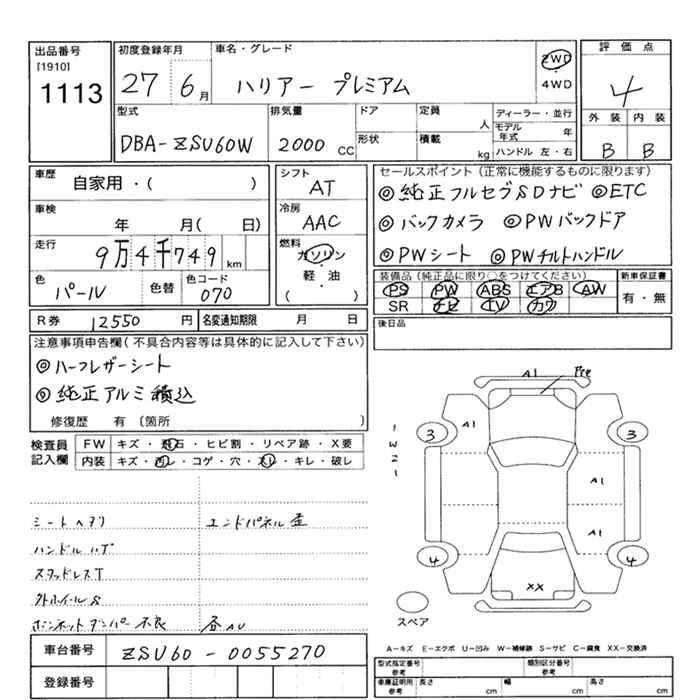 出品番号 [1910] 1113
初度登録年月 27 6月
車名・グレード ハリアー プレミアム
2WD ・ 4WD
評価点 4
外装 内装
B B
型式 DBA-ZSU60W
排気量 2000 CC
ドア 形状
定員 人
積載 kg
ディーラー・並行
モデル年式 年
ハンドル 左・右
車歴 自家用・( )
車検 年 月( 日)
走行 9万4千749 km
色 パール 色替 色コード 070
シフト AT
冷房 AAC
燃料 ガソリン・軽・油 ( )
セールスポイント (正常に機能するものに限ります)
◎純正フルセグSDナビ ◎ETC
◎バックカメラ ◎PWバックドア
◎PWシート ◎PWチルトハンドル
装備品 (純正品に限り○をつけてください)
PS PW ABS エアB AW
SR ナビ TV カワ
新車保証書 有・無
後日品
R券 12550 円 名変通知期限 月 日
注意事項申告欄 (不具合内容等は具体的に記入して下さい)
◎ハーフレザーシート
◎純正アルミ積込
修復歴 有 (箇所 )
検査員記入欄
FW キズ・飛石・ヒビ割・リペア跡・X要
内装 キズ・汚レ・コゲ・穴・スレ・キレ・破レ
シートヘタリ エンドパネル歪
ハンドルハゲ
スタッドレスT
外ホイールS
ボンネットダンパー不良
車台番号 ZSU60-0055270
登録番号
A1
Fre
3 A1 3
1W21
A1
A1
4 4
XX
スペア
A-キズ E-エクボ U-凹み W-補修跡 S-サビ C-腐食 XX-交換済
型式指定番号 参考 類別区分番号 参考
車庫証明用 参考 長さ cm 幅 cm 高さ cm